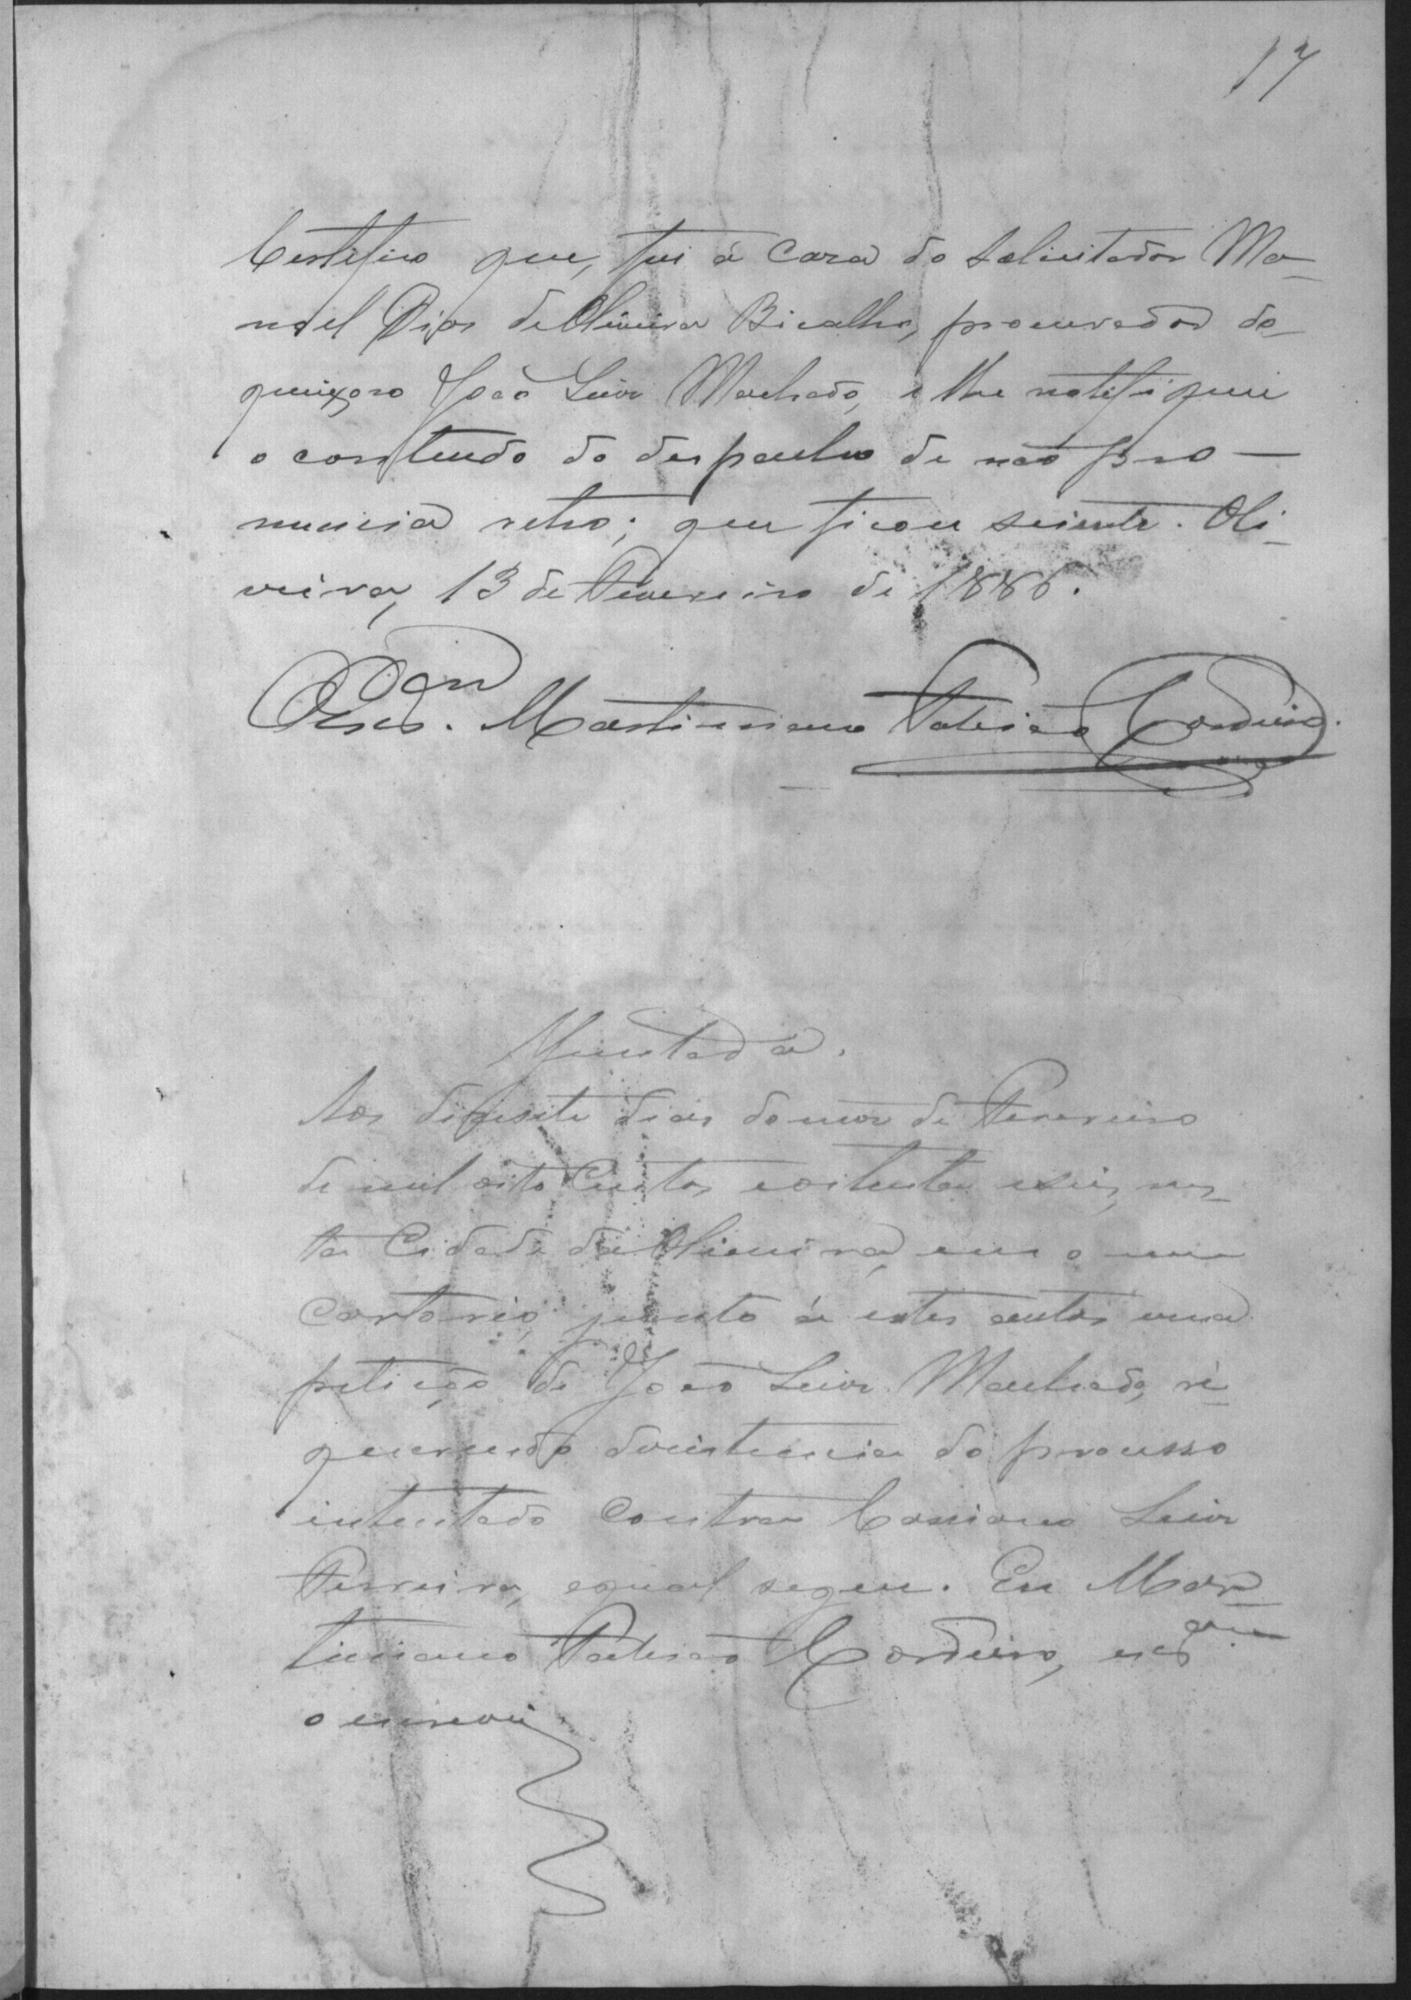 17
Certifico que, fui á casa do Solicitador Ma-
noel Dias de Oliveira Bicalho, procurador do
queixoso João Luiz Machado, e lhe notifiquei
o contendo do despacho de não pro-
nuncia retro; que ficou sciente. Oli-
veira, 13 de Fevereiro de 1886.
Escram. Martiniano Patricio Cordeiro.
Juntada.
Aos desesete dias do mez de Fevereiro
de mil oito Centos e oitenta e seis, nes-
ta Cidade da Oliveira, em o meu
Cartorio, junto á estes autos uma
petição de João Luiz Machado, re-
querendo desistencia do processo
intentado contra Cassiano Luiz
Ferreira, e qual segue. Eu Mar-
tiniano Patricio Cordeiro, escram
o escrevi